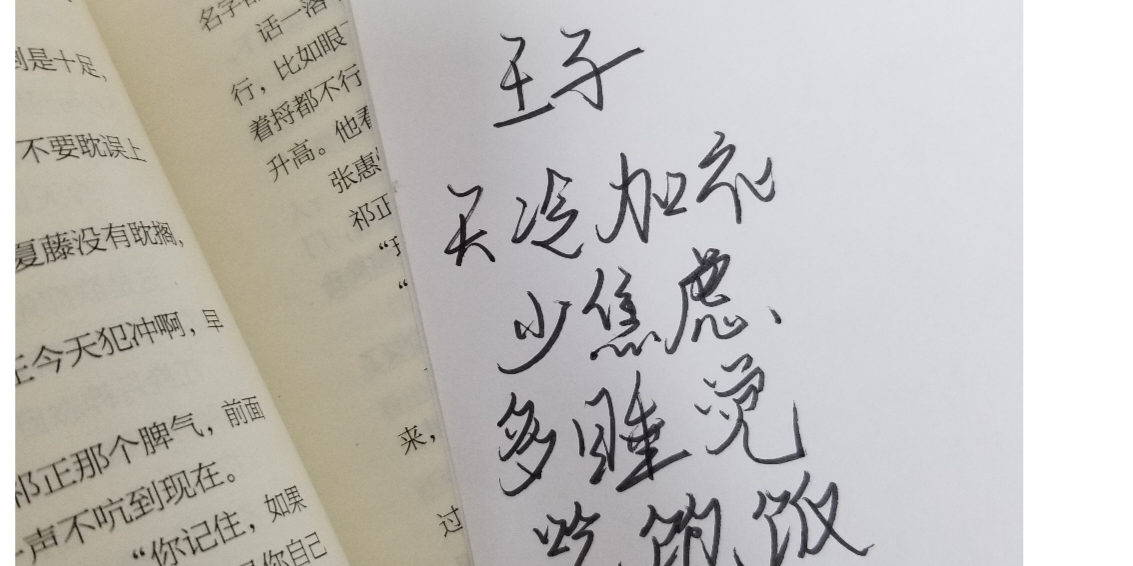 到是十足,
不要耽误上
夏藤没有耽搁,
正今天犯冲啊,早
祁正那个脾气,前面
一声不吭到现在。
“你记住,如果
你自己
名字
话一落
行,比如眼
着捋都不行
升高。他看
张惠
祁正
“我
“
来,
过
王子
天冷加衣
少焦虑、
多睡觉
吃饱饭